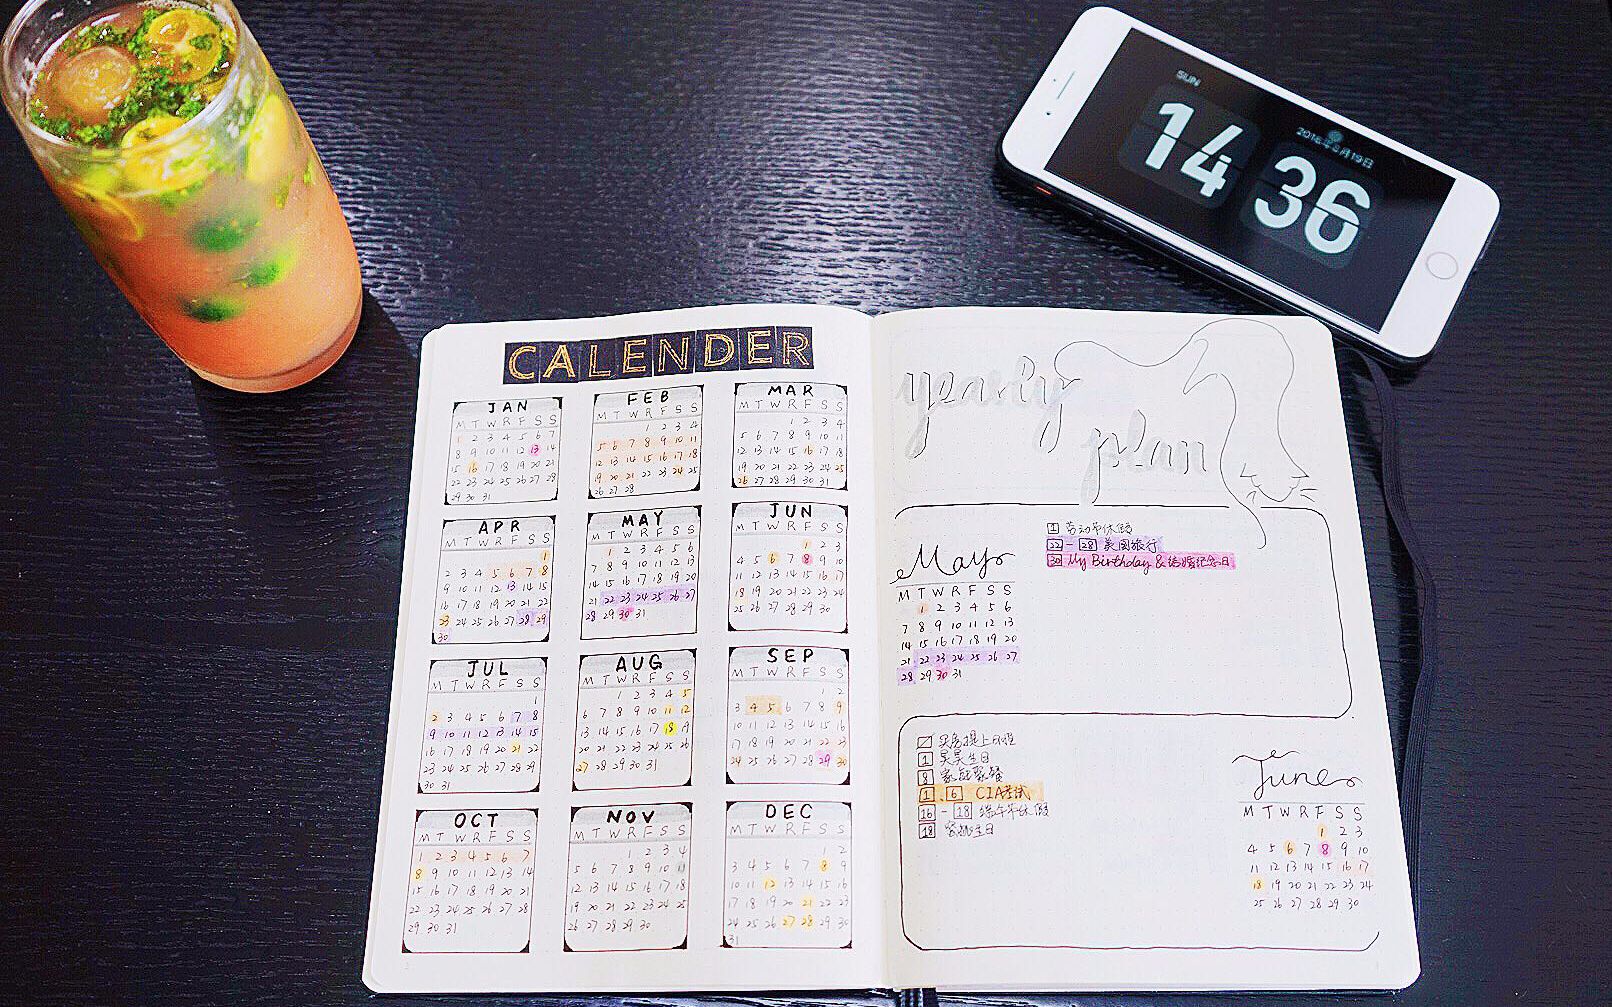 SUN
14 36
CALENDER
JAN
M T W R F S S
1 2 3 4 5 6 7
8 9 10 11 12 13 14
15 16 17 18 19 20 21
22 23 24 25 26 27 28
29 30 31
FEB
M T W R F S S
1 2 3 4
5 6 7 8 9 10 11
12 13 14 15 16 17 18
19 20 21 22 23 24 25
26 27 28
MAR
M T W R F S S
1 2 3 4
5 6 7 8 9 10 11
12 13 14 15 16 17 18
19 20 21 22 23 24 25
26 27 28 29 30 31
APR
M T W R F S S
1
2 3 4 5 6 7 8
9 10 11 12 13 14 15
16 17 18 19 20 21 22
23 24 25 26 27 28 29
30
MAY
M T W R F S S
1 2 3 4 5 6
7 8 9 10 11 12 13
14 15 16 17 18 19 20
21 22 23 24 25 26 27
28 29 30 31
JUN
M T W R F S S
1 2 3
4 5 6 7 8 9 10
11 12 13 14 15 16 17
18 19 20 21 22 23 24
25 26 27 28 29 30
JUL
M T W R F S S
1
2 3 4 5 6 7 8
9 10 11 12 13 14 15
16 17 18 19 20 21 22
23 24 25 26 27 28 29
30 31
AUG
M T W R F S S
1 2 3 4 5
6 7 8 9 10 11 12
13 14 15 16 17 18 19
20 21 22 23 24 25 26
27 28 29 30 31
SEP
M T W R F S S
1 2
3 4 5 6 7 8 9
10 11 12 13 14 15 16
17 18 19 20 21 22 23
24 25 26 27 28 29 30
OCT
M T W R F S S
1 2 3 4 5 6 7
8 9 10 11 12 13 14
15 16 17 18 19 20 21
22 23 24 25 26 27 28
29 30 31
NOV
M T W R F S S
1 2 3 4
5 6 7 8 9 10 11
12 13 14 15 16 17 18
19 20 21 22 23 24 25
26 27 28 29 30
DEC
M T W R F S S
1 2
3 4 5 6 7 8 9
10 11 12 13 14 15 16
17 18 19 20 21 22 23
24 25 26 27 28 29 30
31
yearly
plan
1 劳动节休假
22 - 28 美国旅行
30 My Birthday & 结婚纪念日
May
M T W R F S S
1 2 3 4 5 6
7 8 9 10 11 12 13
14 15 16 17 18 19 20
21 22 23 24 25 26 27
28 29 30 31
买房提上日程
1 昊昊生日
8 家庭聚餐
1、6 CIA考试
16 - 18 端午节休假
18 生日
June
M T W R F S S
1 2 3
4 5 6 7 8 9 10
11 12 13 14 15 16 17
18 19 20 21 22 23 24
25 26 27 28 29 30